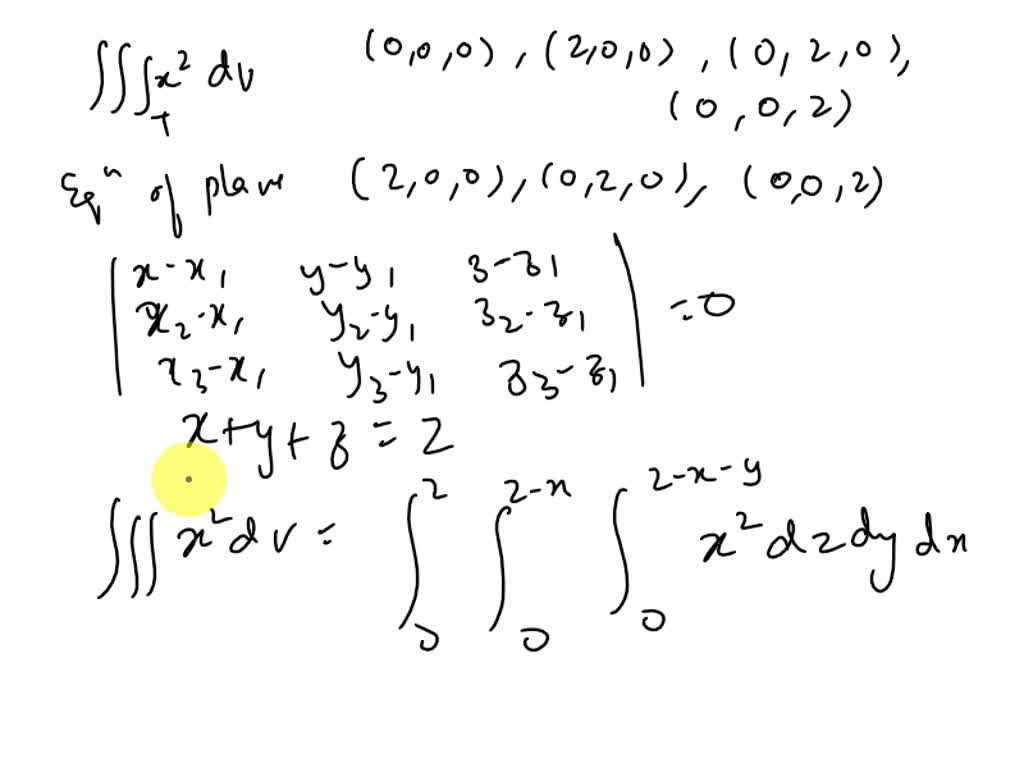 ∭_T x² dv (0,0,0), (2,0,0), (0,2,0),
(0,0,2)
Eqⁿ of plane (2,0,0), (0,2,0), (0,0,2)
| x-x₁ y-y₁ z-z₁ |
| x₂-x₁ y₂-y₁ z₂-z₁ | = 0
| x₃-x₁ y₃-y₁ z₃-z₁ |
x+y+z = 2
∭ x² dv = ∫₀² ∫₀^(2-x) ∫₀^(2-x-y) x² dz dy dx